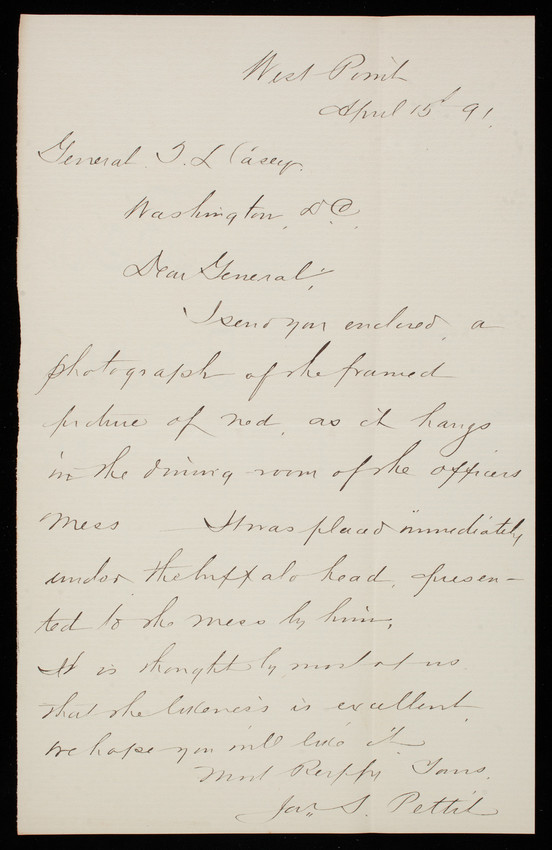 West Point
April 15th 91.
General T. L Casey.
Washington, D.C.
Dear General;
I send you enclosed, a
photograph of the framed
picture of Ned, as it hangs
in the dining room of the officers
mess — It was placed immediately
under the buffalo head, presen-
ted to the mess by him.
It is thought by most of us
that the likeness is excellent
we hope you will like it
Most Respfy Yours.
Jas. S. Pettit